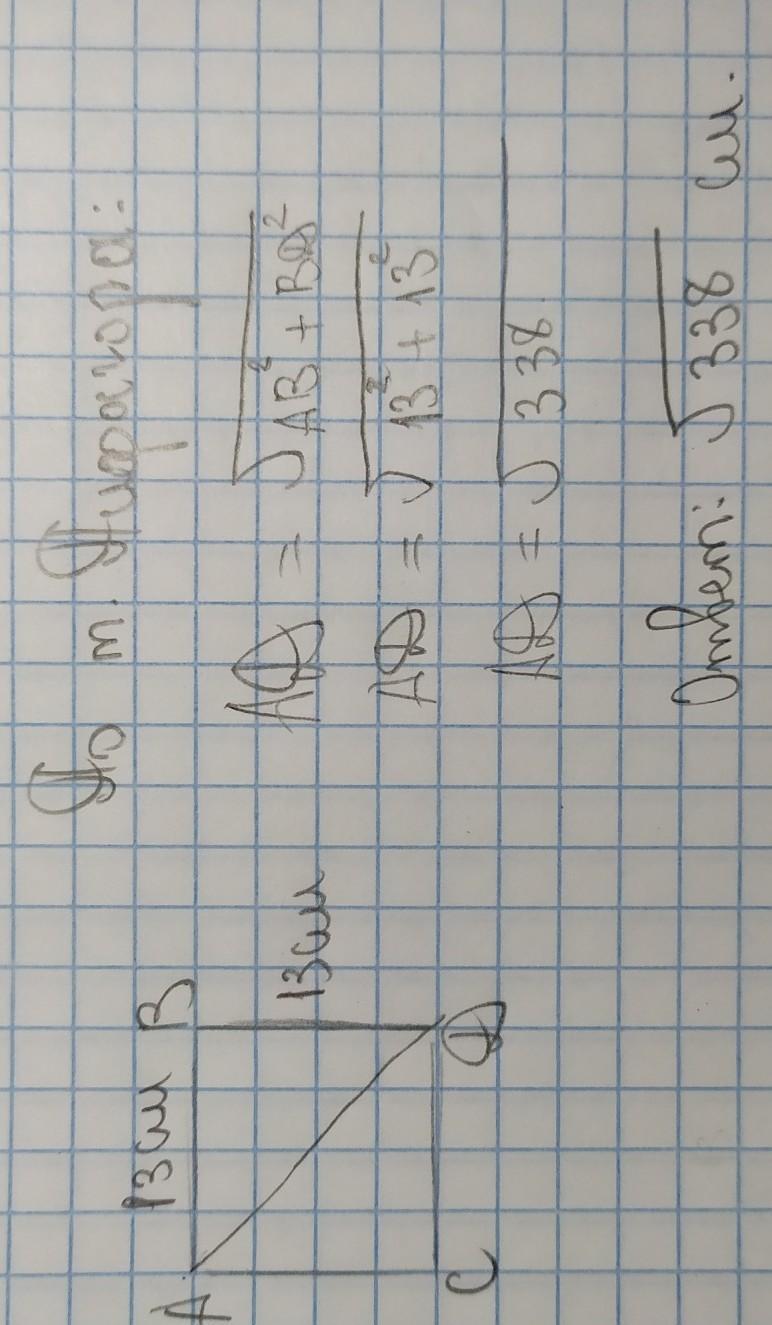 A 13 см B
13 см
C D
По т. Пифагора:
AD = √AB² + BD²
AD = √13² + 13²
AD = √338.
Ответ: √338 см.